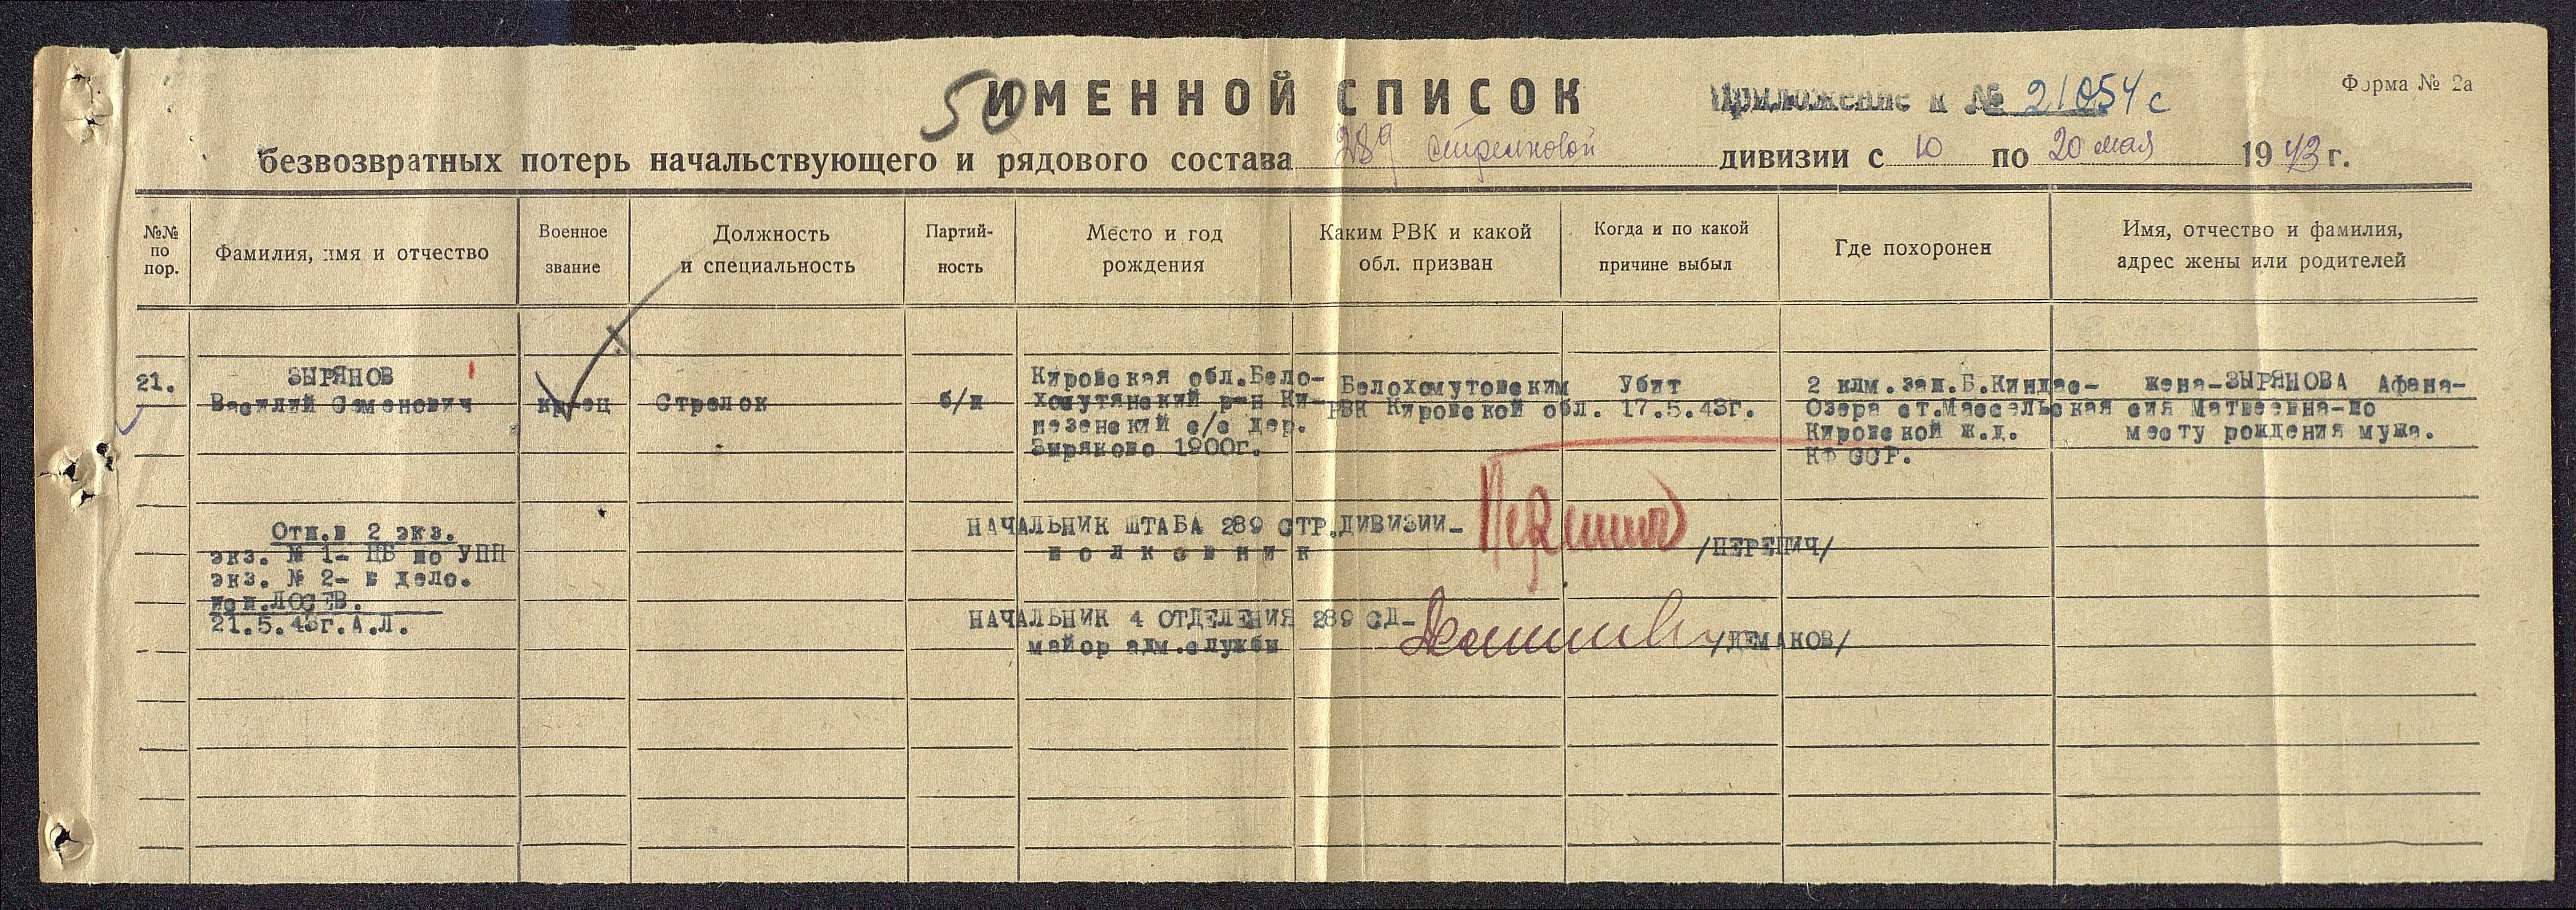 50
ИМЕННОЙ СПИСОК
Приложение к № 21054с
Форма № 2а
безвозвратных потерь начальствующего и рядового состава 289 стрелковой дивизии с 10 по 20 мая 1943 г.
№№ по пор.
Фамилия, имя и отчество
Военное звание
Должность и специальность
Партийность
Место и год рождения
Каким РВК и какой обл. призван
Когда и по какой причине выбыл
Где похоронен
Имя, отчество и фамилия, адрес жены или родителей
21.
ЗЫРЯНОВ
Василий Семенович
кр-ец
Стрелок
б/п
Кировская обл.Бело-
хомутянский р-н Ки-
с/с дер.
Зыряново 1900г.
Белохомутовским
РВК Кировской обл.
Убит
17.5.43г.
2 клм.зап.Б.Киндас-
Озера ст.Массельская
Кировской ж.д.
КФ ССР.
жена-ЗЫРЯНОВА Афана-
сия Матвеевна-по
месту рождения мужа.
Отп.в 2 экз.
экз. № 1- ЦБ по УПП
экз. № 2- в дело.
исп.ЛОСЕВ.
21.5.43г.А.Л.
НАЧАЛЬНИК ШТАБА 289 СТР.ДИВИЗИИ-
полковник
/ПЕРЕПИЧ/
НАЧАЛЬНИК 4 ОТДЕЛЕНИЯ 289 СД-
майор адм.службы
/ДЕМАКОВ/